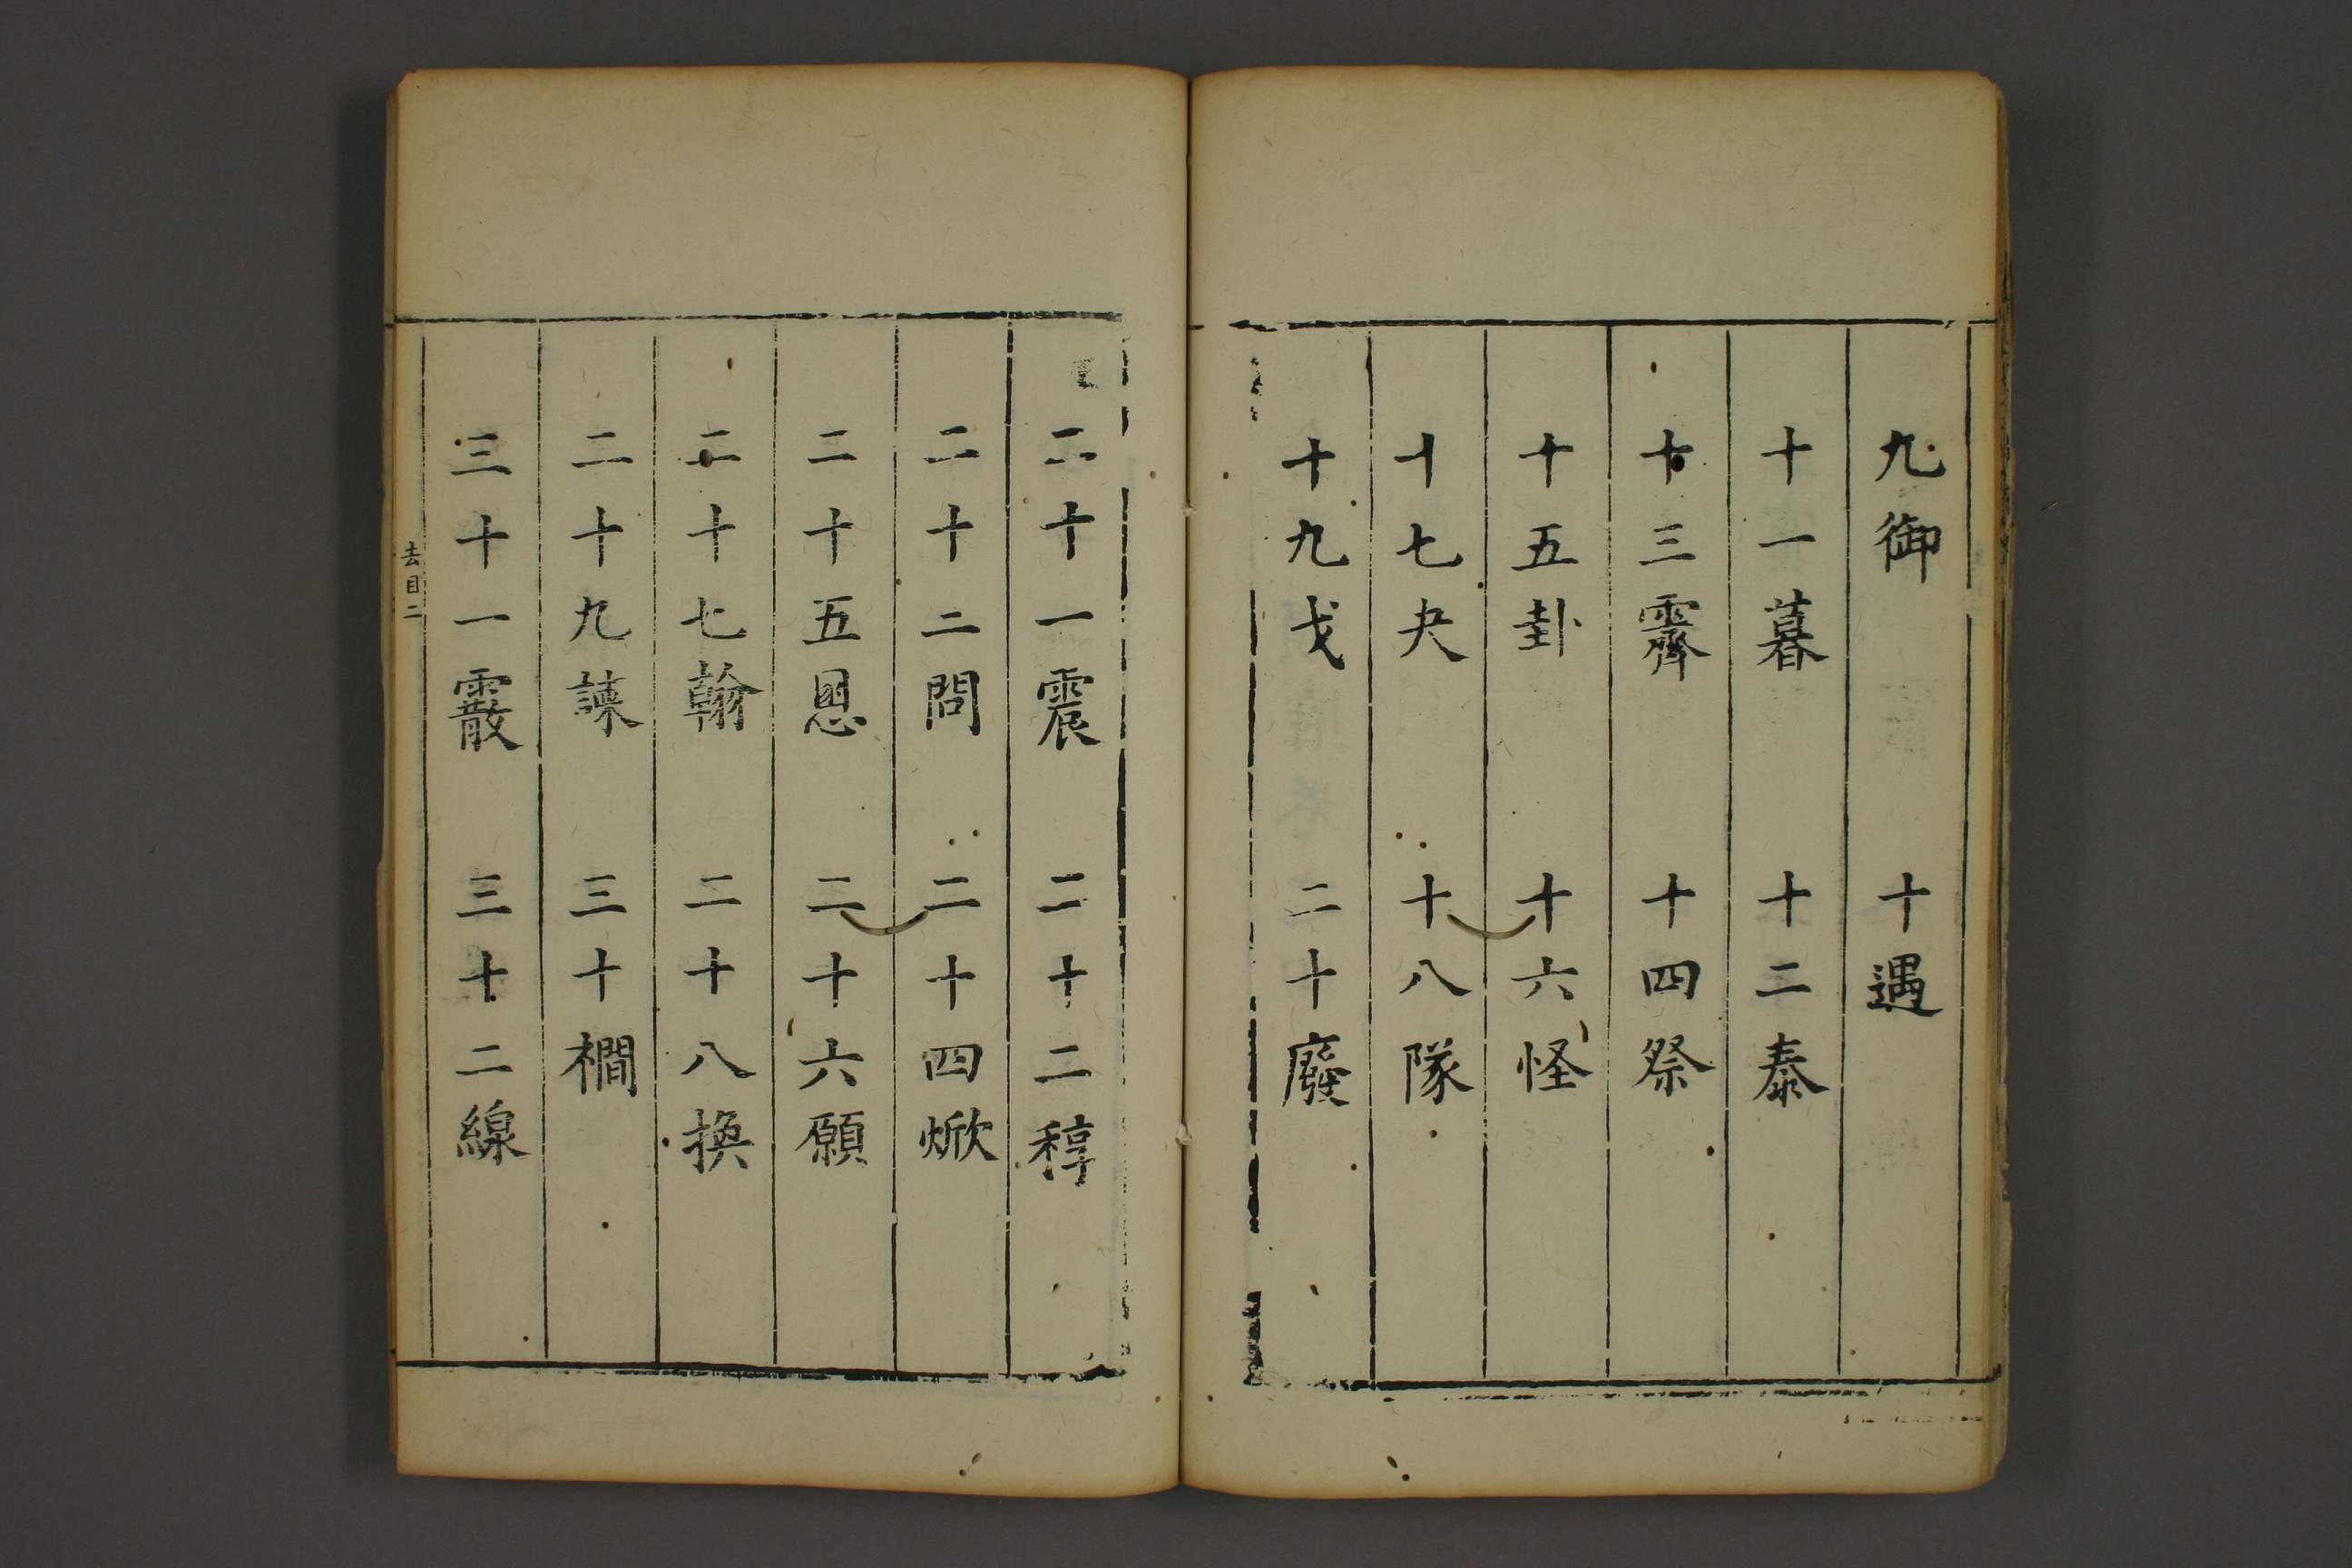 九御　十遇
十一暮　十二泰
十三霽　十四祭
十五卦　十六怪
十七夬　十八隊
十九戈　二十廢
二十一震　二十二稕
二十二問　二十四焮
二十五慁　二十六願
二十七翰　二十八換
二十九諫　三十襉
三十一霰　三十二線
去目二